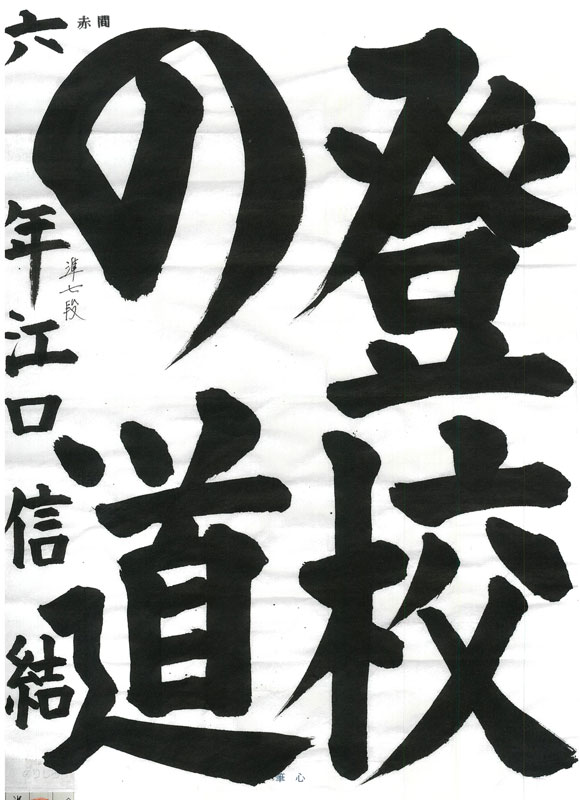 登校
の道
六年江口信結
準七段
赤間
筆心